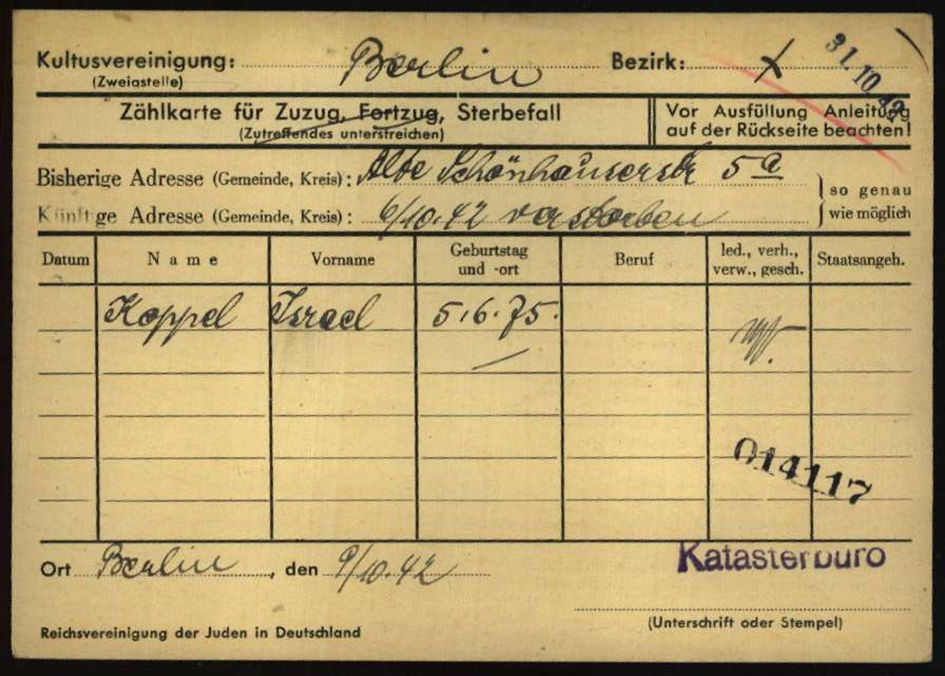 Kultusvereinigung: Berlin Bezirk: 31.10.42
(Zweigstelle)
Zählkarte für Zuzug, Fortzug, Sterbefall
(Zutreffendes unterstreichen)
Vor Ausfüllung Anleitung
auf der Rückseite beachten!
Bisherige Adresse (Gemeinde, Kreis): Alte Schönhauserstr 5a
Künftige Adresse (Gemeinde, Kreis): 6/10.42 verstorben
so genau
wie möglich
Datum Name Vorname Geburtstag und -ort Beruf led., verh., verw., gesch. Staatsangeh.
Koppel Israel 5.6.75.
014117
Ort Berlin, den 9/10.42
Katasterbüro
(Unterschrift oder Stempel)
Reichsvereinigung der Juden in Deutschland